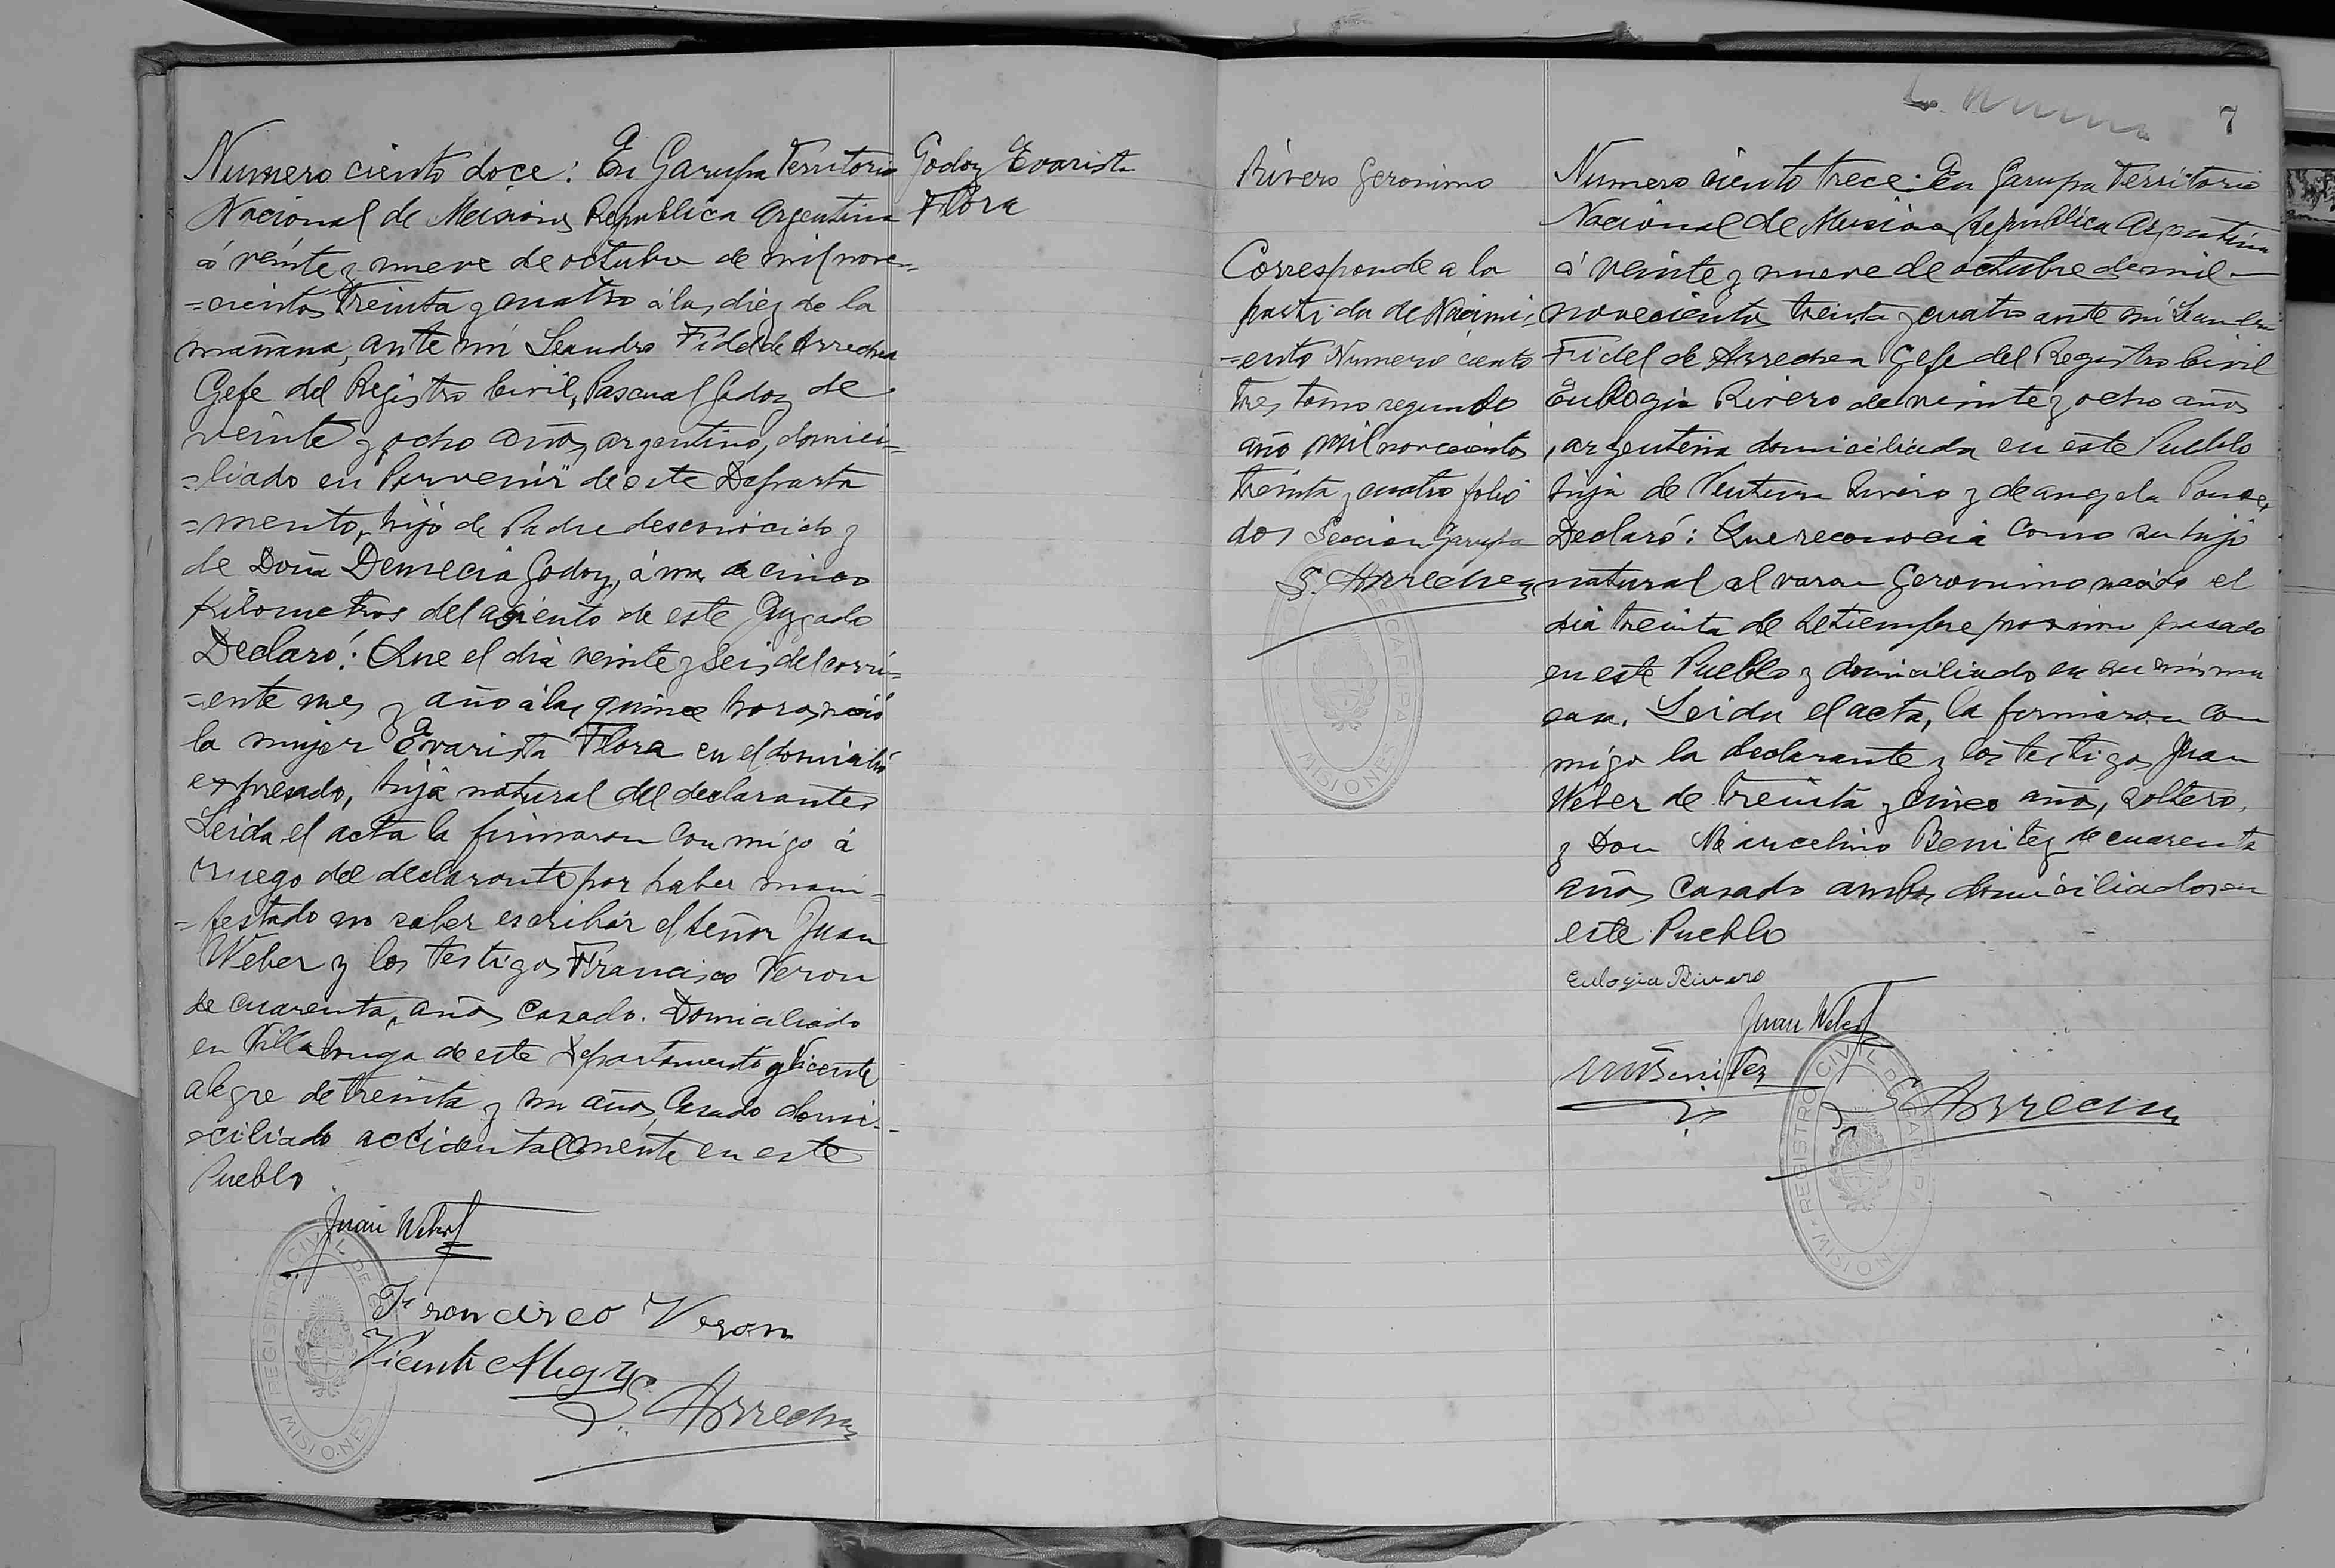 Numero ciento doce: En Garupa Territorio
Nacional de Misiones Republica Argentina
á veinte y nueve de octubre de mil nove-
=cientos treinta y cuatro á las diez de la
mañana, ante mí Leandro Fidel de Arrechea
Gefe del Registro Civil, Pascual Godoy de
veinte y ocho años, argentino, domici=
=liado en "Porvenir" de este Departa
=mento, hijo de Padre desconocido y
de Doña Demecia Godoy, á mas de cinco
Kilometros del asiento de este Juzgado
Declaró: Que el dia veinte y seis del corri=
=ente mes y año á las quince horas nació
la mujer Evarista Flora en el domicilio
expresado, hija natural del declarante
Leida el acta la firmaron con migo á
ruego del declarante por haber mani-
=festado no saber escribir el señor Juan
Weber y los testigos Francisco Veron
de cuarenta años casado. Domiciliado
en Villa de este Departamento y Vicente
alegre de treinta y un años, Casado domi-
=ciliado accidentalmente en este
Pueblo
Juan Weber
Francisco Veron
Vicente Alegre
L. Arrechea
REGISTRO CIVIL DE
MISIONES
Godoy Evarista
Flora
7
Rivero Geronimo
Corresponde a la
partida de Nacimi-
=ento Numero ciento
tres tomo segundo
año mil novecientos
treinta y cuatro folio
dos Seccion Garupa
L. Arrechea
GARUPA
MISIONES
Numero ciento trece: En Garupa Territorio
Nacional de Misiones Republica Argentina
á veinte y nueve de octubre de mil
novecientos treinta y cuatro ante mí Leandro
Fidel de Arrechea Gefe del Registro Civil
Eulogia Rivero de veinte y ocho años
, argentina domiciliada en este Pueblo
hija de Ventura Rivero y de angela
Declaró: Que reconocia como su hijo
natural al varon Geronimo nacido el
dia treinta de Setiembre proximo pasado
en este Pueblo y domiciliado en su misma
casa. Leida el acta, la firmaron con
migo la declarante y los testigos Juan
Weber de treinta y cinco años, soltero,
y Don Marcelino Benitez de cuarenta
años casado ambos domiciliados en
este Pueblo
Eulogia Rivero
Juan Weber
MBenitez
L. Arrechea
REGISTRO CIVIL DE GARUPA
MISIONES